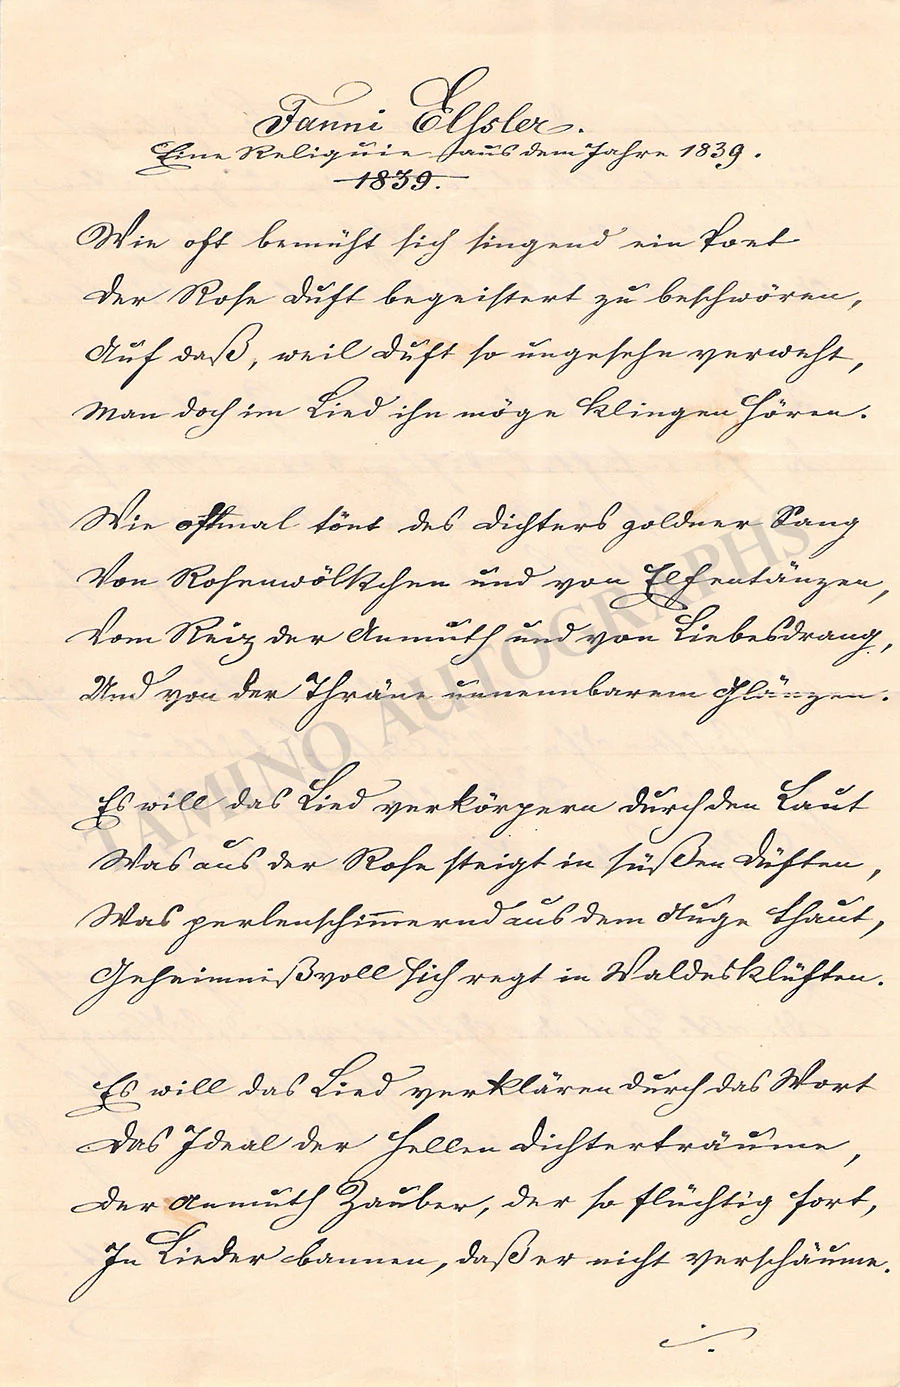 Fanni Elßler.
Eine Reliquie aus dem Jahre 1839.
1839.
Wie oft bemüht sich singend ein Poet
Der Rose Duft begeistert zu beschwören,
Auf daß, weil Duft so ungesehn verweht,
Man doch im Lied ihn möge klingen hören.
Wie oftmal tönt des Dichters goldner Sang
Von Rosenwölkchen und von Elfentänzen,
Vom Reiz der Anmuth und von Liebesdrang,
Und von der Thräne unnennbarem Glänzen.
Es will das Lied verkörpern durch den Laut
Was aus der Rose steigt in süßen Düften,
Was perlenschimmernd aus dem Auge thaut,
Geheimnißvoll sich regt in Waldesklüften.
Es will das Lied verklären durch das Wort
Das Ideal der hellen Dichterträume,
Der Anmuth Zauber, der so flüchtig fort,
In Lieder bannen, daß er nicht verschäume.
TAMINO AUTOGRAPHS